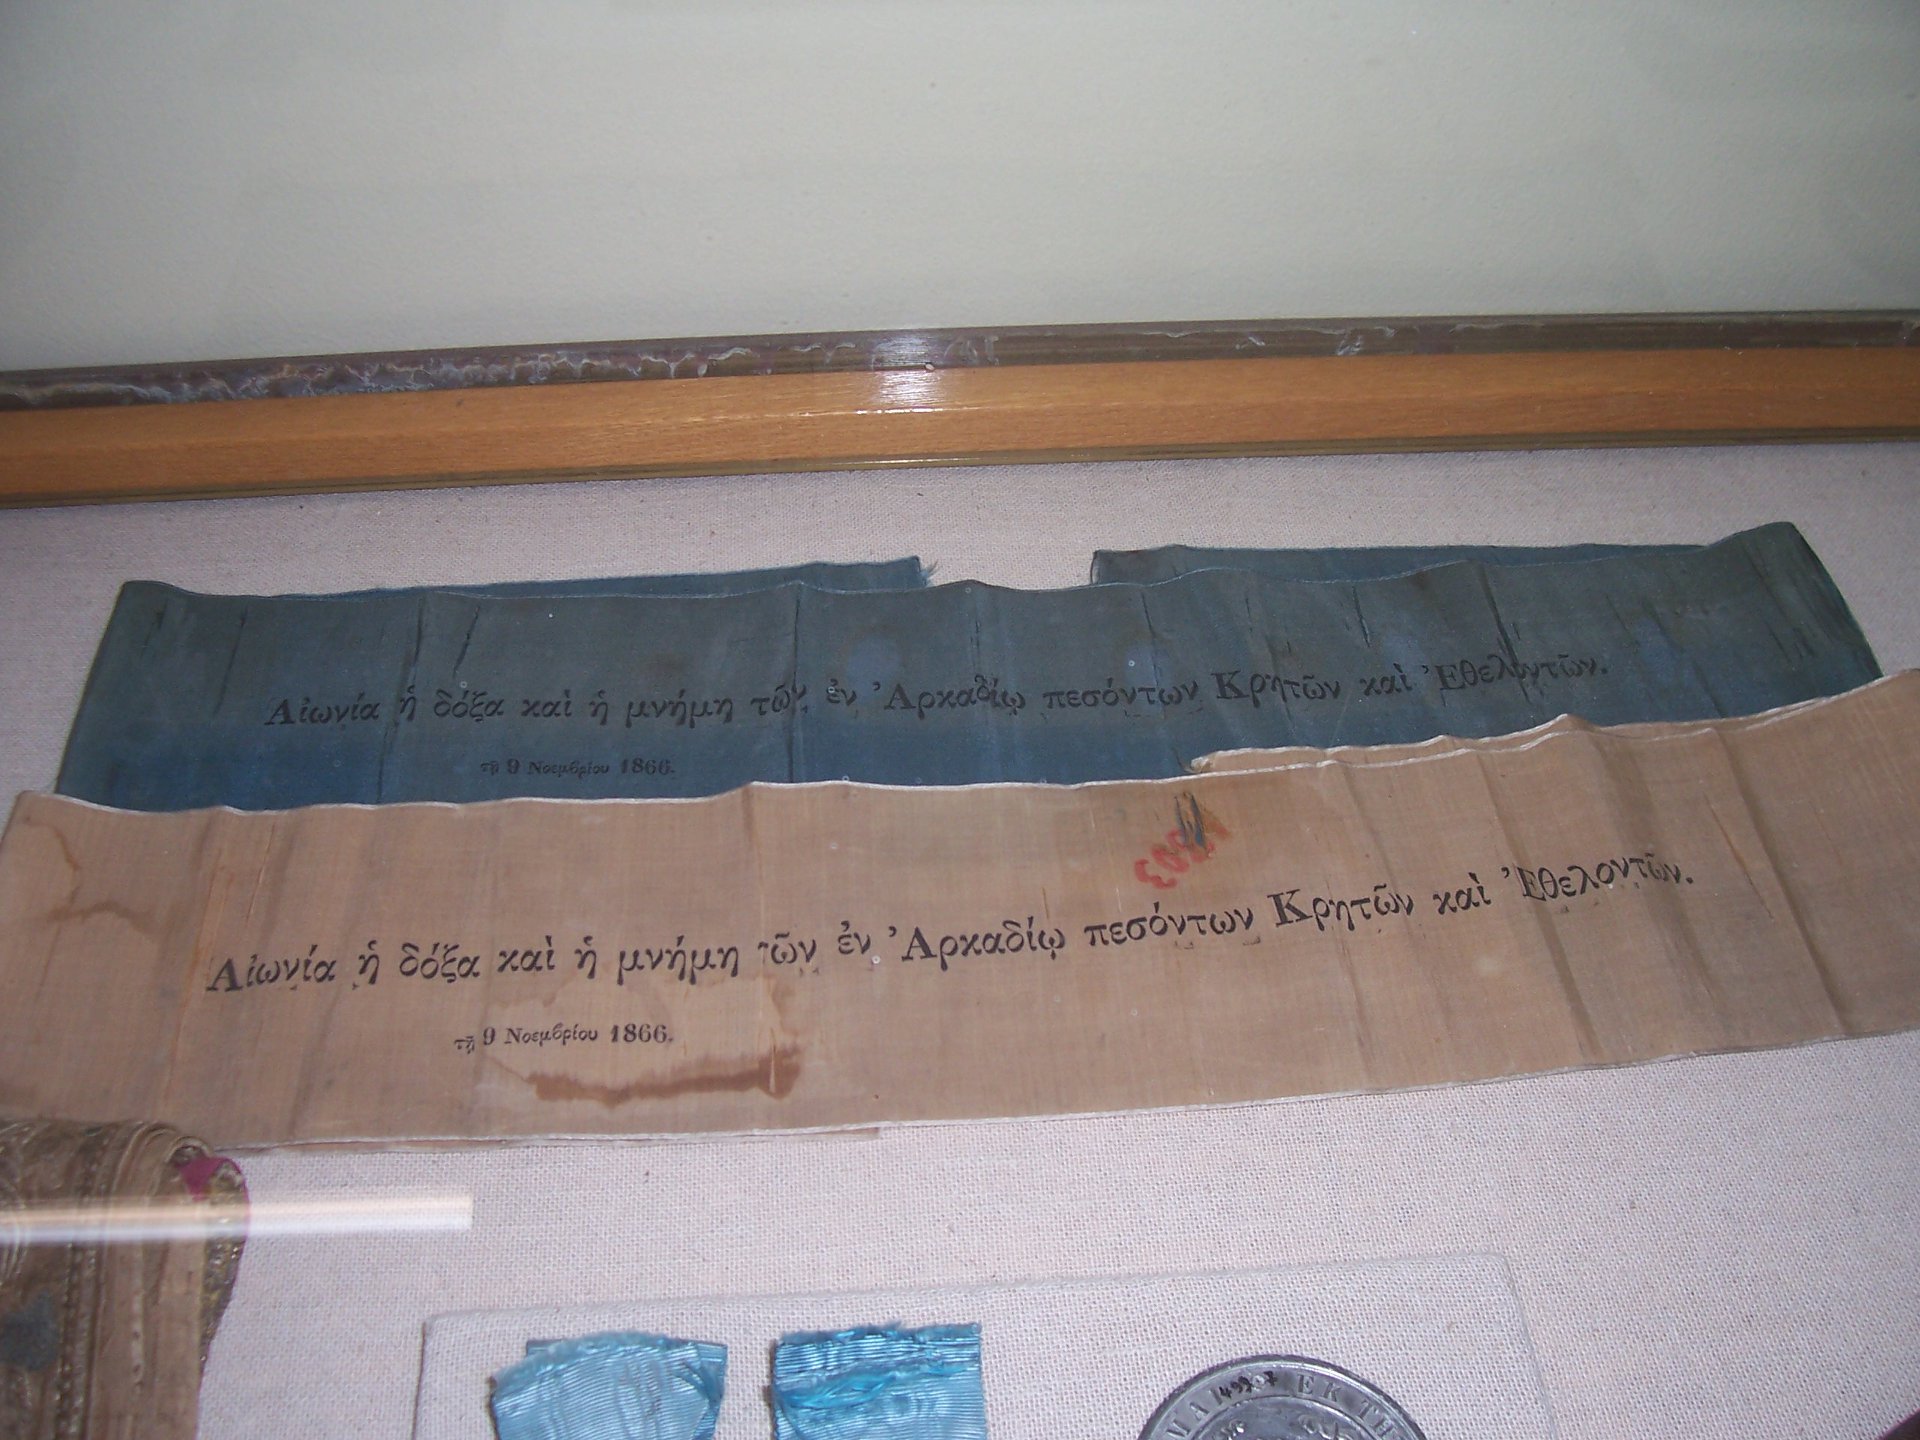 Αἰωνία ἡ δόξα καὶ ἡ μνήμη τῶν ἐν Ἀρκαδίῳ πεσόντων Κρητῶν καὶ Ἐθελοντῶν.
τῇ 9 Νοεμβρίου 1866.
Αἰωνία ἡ δόξα καὶ ἡ μνήμη τῶν ἐν Ἀρκαδίῳ πεσόντων Κρητῶν καὶ Ἐθελοντῶν.
τῇ 9 Νοεμβρίου 1866.
ΕΚ